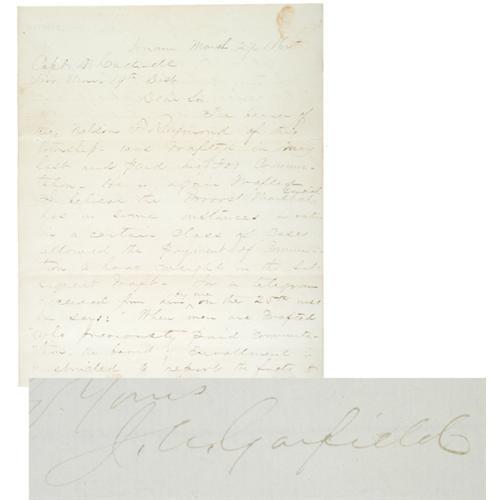 Hiram March 27, 1865
Capt.
Pro. Mar. 19th Dist.
Dear Sir
The bearer of
Nelson Raymond of this
township was drafted in May
last and paid his Commu-
tation. He is again drafted.
I believe the Provost Marshal General
has in some instances
in a certain class of cases
allowed the payment of Commu-
tation to have weight in the sub-
sequent draft. In a telegram
received from him by me on the 25th inst
he says: "When men are drafted
"who previously paid Commuta-
"tion, the board of Enrollment is
instructed to report the facts &
Yours
J. A. Garfield